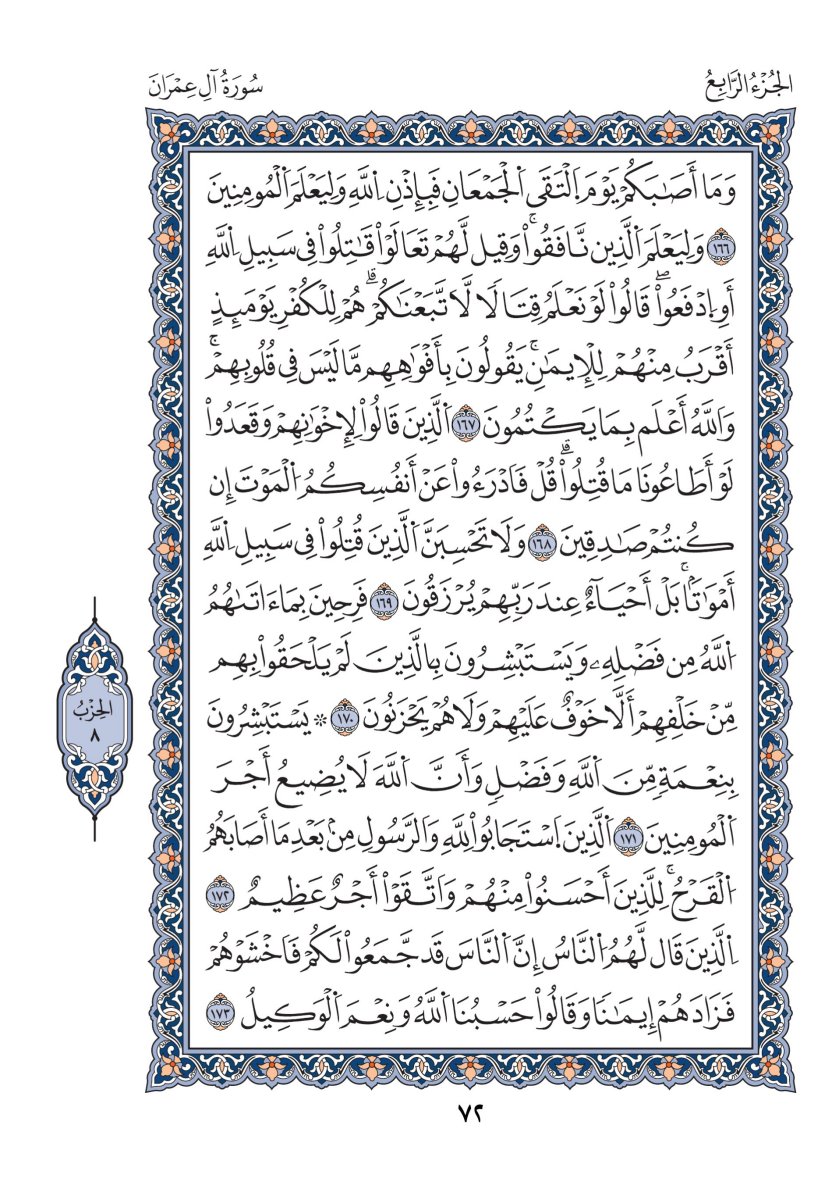 الجُزْءُ الرَّابِعُ
سُورَةُ آلِ عِمْرَانَ
وَمَا أَصَٰبَكُمْ يَوْمَ اَ۬لْتَقَى اَ۬لْجَمْعَانِ فَبِإِذْنِ اِ۬للَّهِ وَلِيَعْلَمَ اَ۬لْمُومِنِينَ
١٦٦ وَلِيَعْلَمَ اَ۬لَّذِينَ نَّافَقُواْۚ وَقِيل لَّهُمْ تَعَالَوْاْ قَٰتِلُواْ فِي سَبِيلِ اِ۬للَّهِ
أَوِ اِ۪دْفَعُواْۖ قَالُواْ لَوْ نَعْلَمُ قِتَالًا لَّاتَّبَعْنَٰكُمْۗ هُمْ لِلْكُفْرِ يَوْمَئِذٍ
أَقْرَبُ مِنْهُمْ لِلْإِيمَٰنِۚ يَقُولُونَ بِأَفْوَٰهِهِم مَّا لَيْسَ فِي قُلُوبِهِمْۚ
وَاَللَّهُ أَعْلَم بِمَا يَكْتُمُونَ ١٦٧ اَ۬لَّذِينَ قَالُواْ لِإِخْوَٰنِهِمْ وَقَعَدُواْ
لَوْ أَطَاعُونَا مَا قُتِلُواْۗ قُلْ فَادْرَءُواْ عَنْ أَنفُسِكُمُ اُ۬لْمَوْتَ إِن
كُنتُمْ صَٰدِقِينَ ١٦٨ وَلَا تَحْسِبَنَّ اَ۬لَّذِينَ قُتِلُواْ فِي سَبِيلِ اِ۬للَّهِ
أَمْوَٰتَۢاۚ بَلْ أَحْيَآءٌ عِندَ رَبِّهِمْ يُرْزَقُونَ ١٦٩ فَرِحِينَ بِمَا ءَاتَىٰهُمُ
اُ۬للَّهُ مِن فَضْلِهِۦ وَيَسْتَبْشِرُونَ بِالَّذِينَ لَمْ يَلْحَقُواْ بِهِم
مِّنْ خَلْفِهِمْ أَلَّا خَوْفٌ عَلَيْهِمْ وَلَا هُمْ يَحْزَنُونَ ١٧٠ ۞ يَسْتَبْشِرُونَ
بِنِعْمَةٍ مِّنَ اَ۬للَّهِ وَفَضْلٍ وَأَنَّ اَ۬للَّهَ لَا يُضِيعُ أَجْرَ
اَ۬لْمُومِنِينَ ١٧١ اَ۬لَّذِينَ اَ۪سْتَجَابُواْ لِلَّهِ وَالرَّسُولِ مِنۢ بَعْدِ مَا أَصَابَهُمُ
اُ۬لْقَرْحُۚ لِلَّذِينَ أَحْسَنُواْ مِنْهُمْ وَاتَّقَوْاْ أَجْرٌ عَظِيمٌ ١٧٢
اِ۬لَّذِينَ قَال لَّهُمُ اُ۬لنَّاسُ إِنَّ اَ۬لنَّاسَ قَد جَّمَعُواْ لَكُمْ فَاخْشَوْهُمْ
فَزَادَهُمْ إِيمَٰنًا وَقَالُواْ حَسْبُنَا اَ۬للَّهُ وَنِعْمَ اَ۬لْوَكِيلُ ١٧٣
الحِزْبُ
٨
٧٢